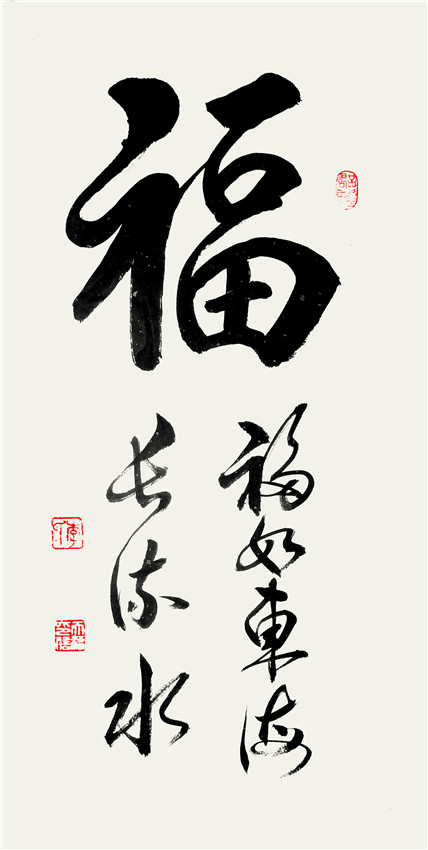 福
福如東海
長流水